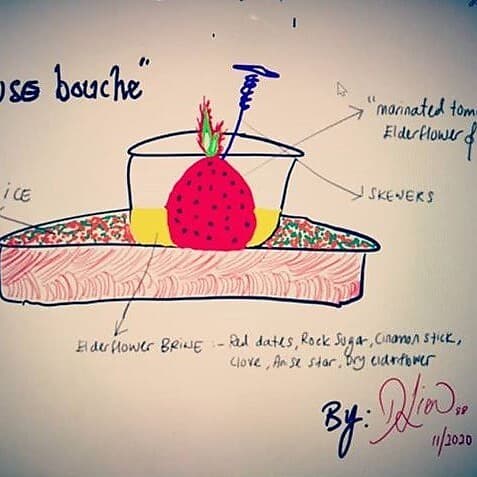 USE bouche"
"marinated tom
Elderflower &
ICE
SKEWERS
Elderflower BRINE :- Red dates, Rock Sugar, Cinamon stick,
Clove, Anise star, Dry eldnflower
By:
88
11/2020